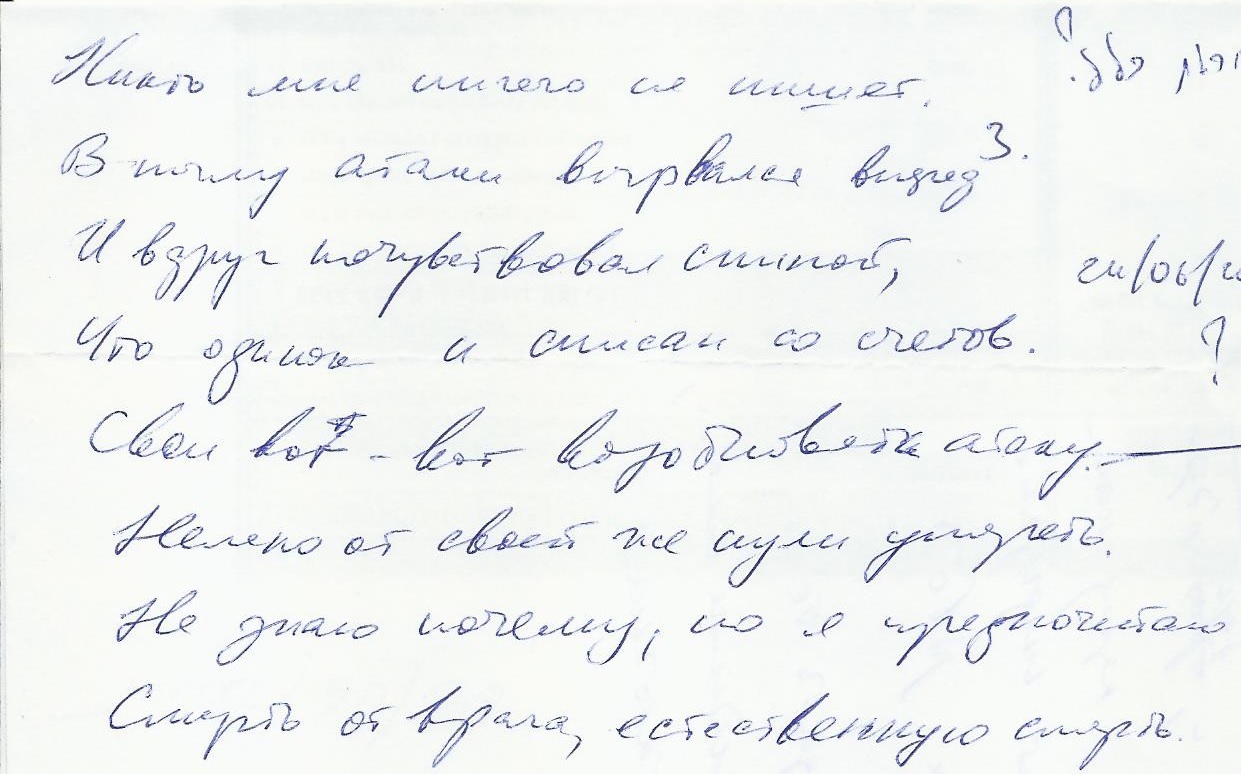 Никто мне ничего не пишет.
В пылу атаки вырвался вперед
3.
И вдруг почувствовал спиной,
Что одинок и списан со счетов.
?
Свои вот-вот возобновят атаку.
Нелепо от своей же пули умереть.
Не знаю почему, но я предпочитаю
Смерть от врача, естественную смерть.